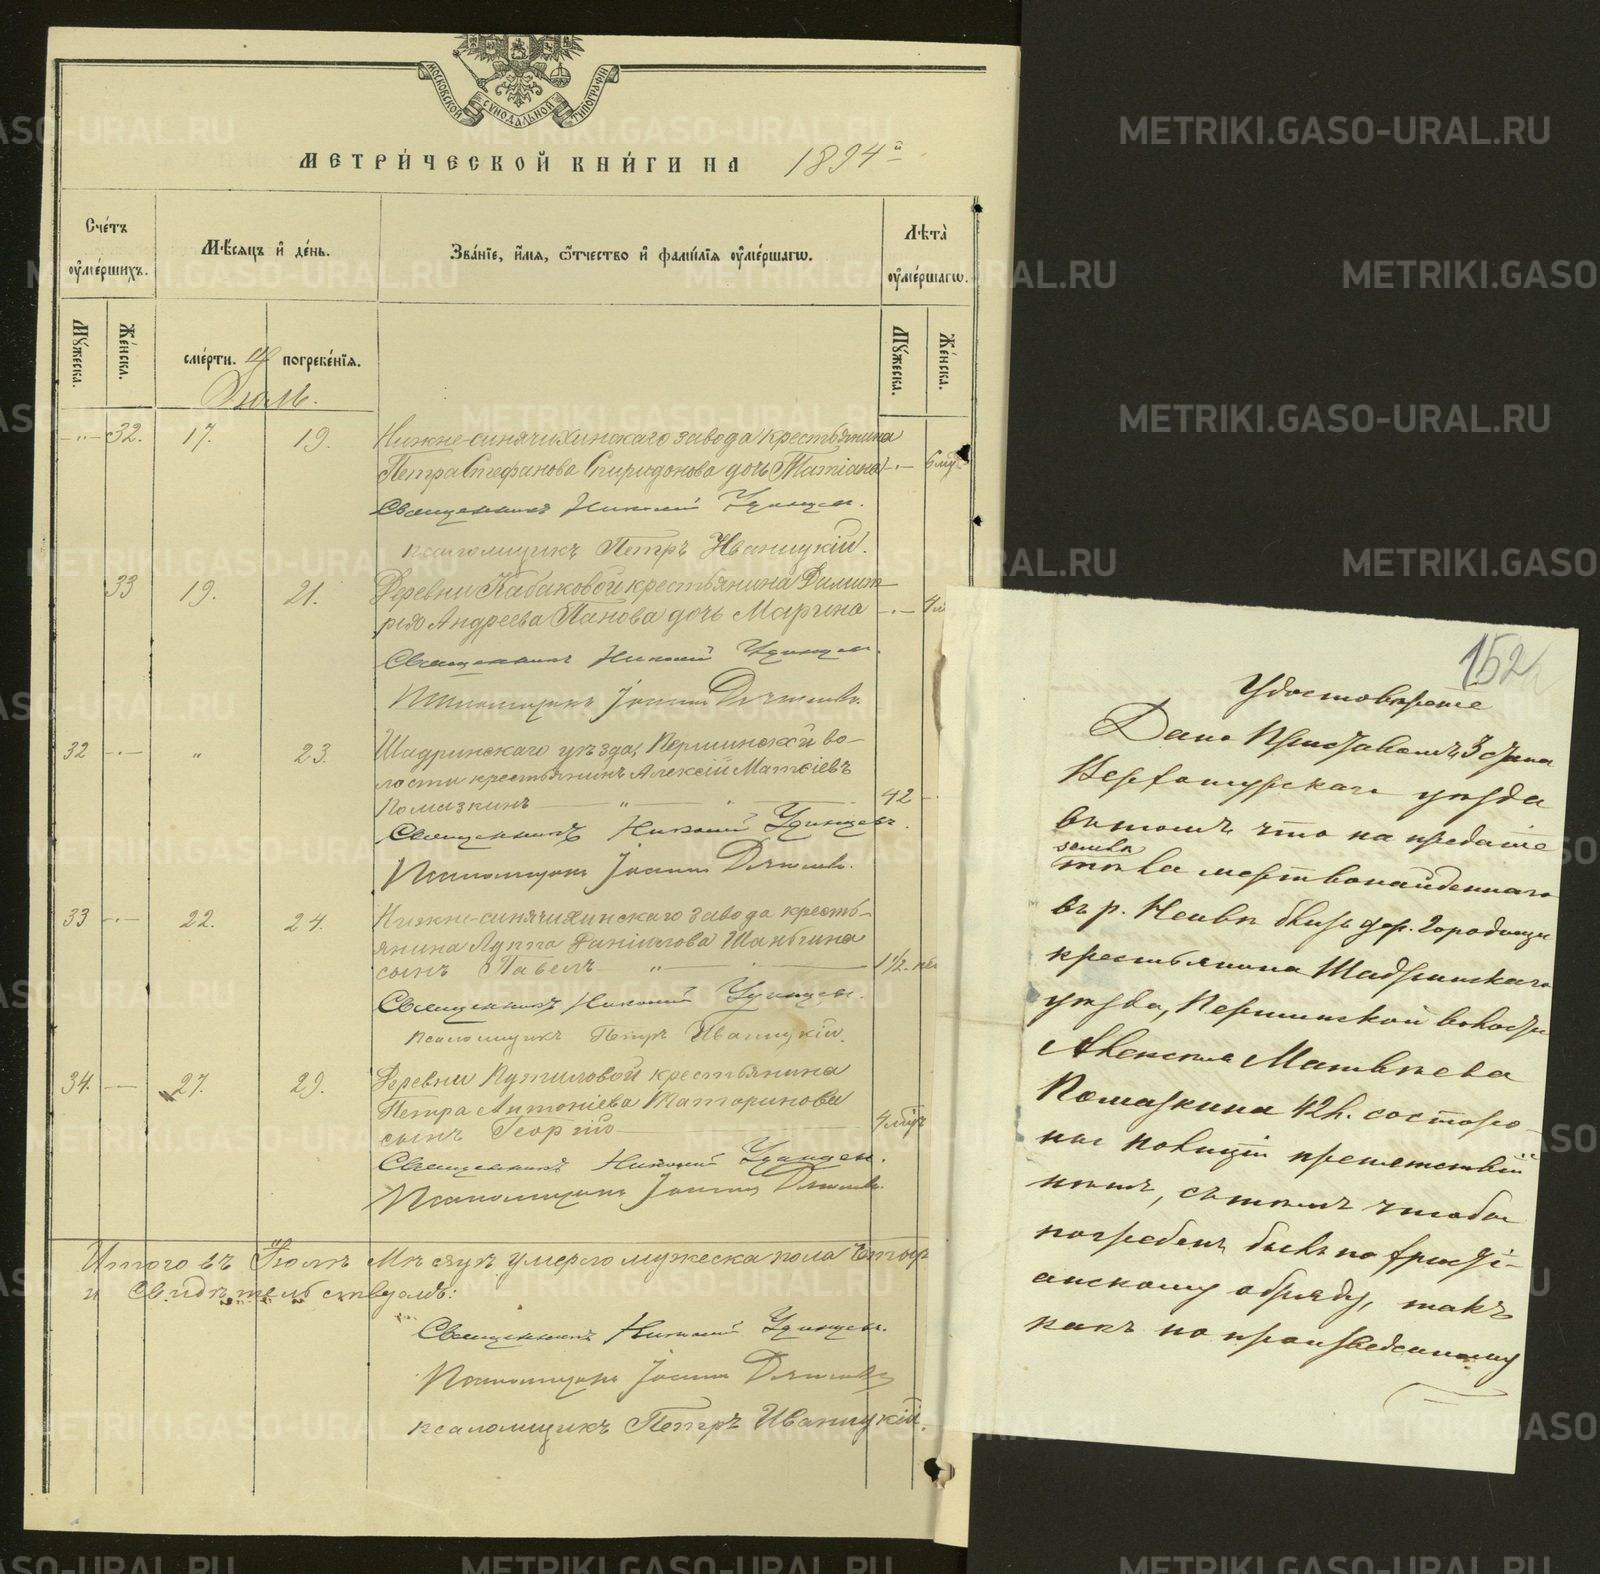 МОСКОВСКОЙ СѴНОДАЛЬНОЙ ТИПОГРАФІИ
МЕТРИ́ЧЕСКОЙ КНИ́ГИ НА 1894 й
Сче́тъ оумéршихъ.
Мѣ́сяцъ и де́нь.
Зва́нїе, и́мя, ѻ҆́тчество и фами́лїя оумéршагѡ.
Лѣта̀ оумéршагѡ.
Мꙋ́жеска.
Же́нска.
сме́рти.
погребе́нїя.
Мꙋ́жеска.
Же́нска.
Іюль.
-"- 32. 17. 19. Нижне-синячихинскаго завода крестьянина
Петра Стефанова Спиридонова дочь Татіана -"-
Священникъ Николай Удинцев.
псаломщикъ Петръ Иваницкій.
33 19. 21. Деревни Кабаковой крестьянина Димит-
рія Андреева Панова дочь Марина -"-
Священникъ Николай Удинцев.
Псаломщикъ Іоаннъ
32 -"- " 23. Шадринскаго уѣзда, Першинской во-
лости крестьянинъ Алексій Матѳіевъ
Помазкинъ — " — 42 -
Священникъ Николай Удинцевъ.
Псаломщикъ Іоаннъ
33 -"- 22. 24. Нижне-синячихинскаго завода кресть-
янина Луппа Даніилова Шаньгина
сынъ Павелъ — " — 1 1/2. нед
Священникъ Николай Удинцев.
псаломщикъ Петръ Иваницкій.
34. — 27. 29. Деревни Путиловой крестьянина
Петра Антоніева Татаринова
сынъ Георгій — 4
Священникъ Николай Удинцев.
Псаломщикъ Іоаннъ
Итого въ Іюлѣ Мѣсяцѣ умерло мужеска пола
и Свидѣтельствуемъ:
Священникъ Николай Удинцев.
Псаломщикъ Іоаннъ
псаломщикъ Петръ Иваницкій.
152
Удостовѣреніе
Дано Приставомъ 3 стана
Верхотурскаго уѣзда
въ томъ что на преданіе
землѣ
тѣла мертвонайденнаго
въ р. Нейвѣ близь дер. Городищи
крестьянина Шадринскаго
уѣзда, Першинской волости
Алексѣя Матвѣева
Помазкина 42 л. со сторо-
ны полиціи препятствій
нѣтъ, съ тѣмъ чтобы
погребенъ былъ по христі-
анскому обряду, такъ
какъ по произведенному
METRIKI.GASO-URAL.RU